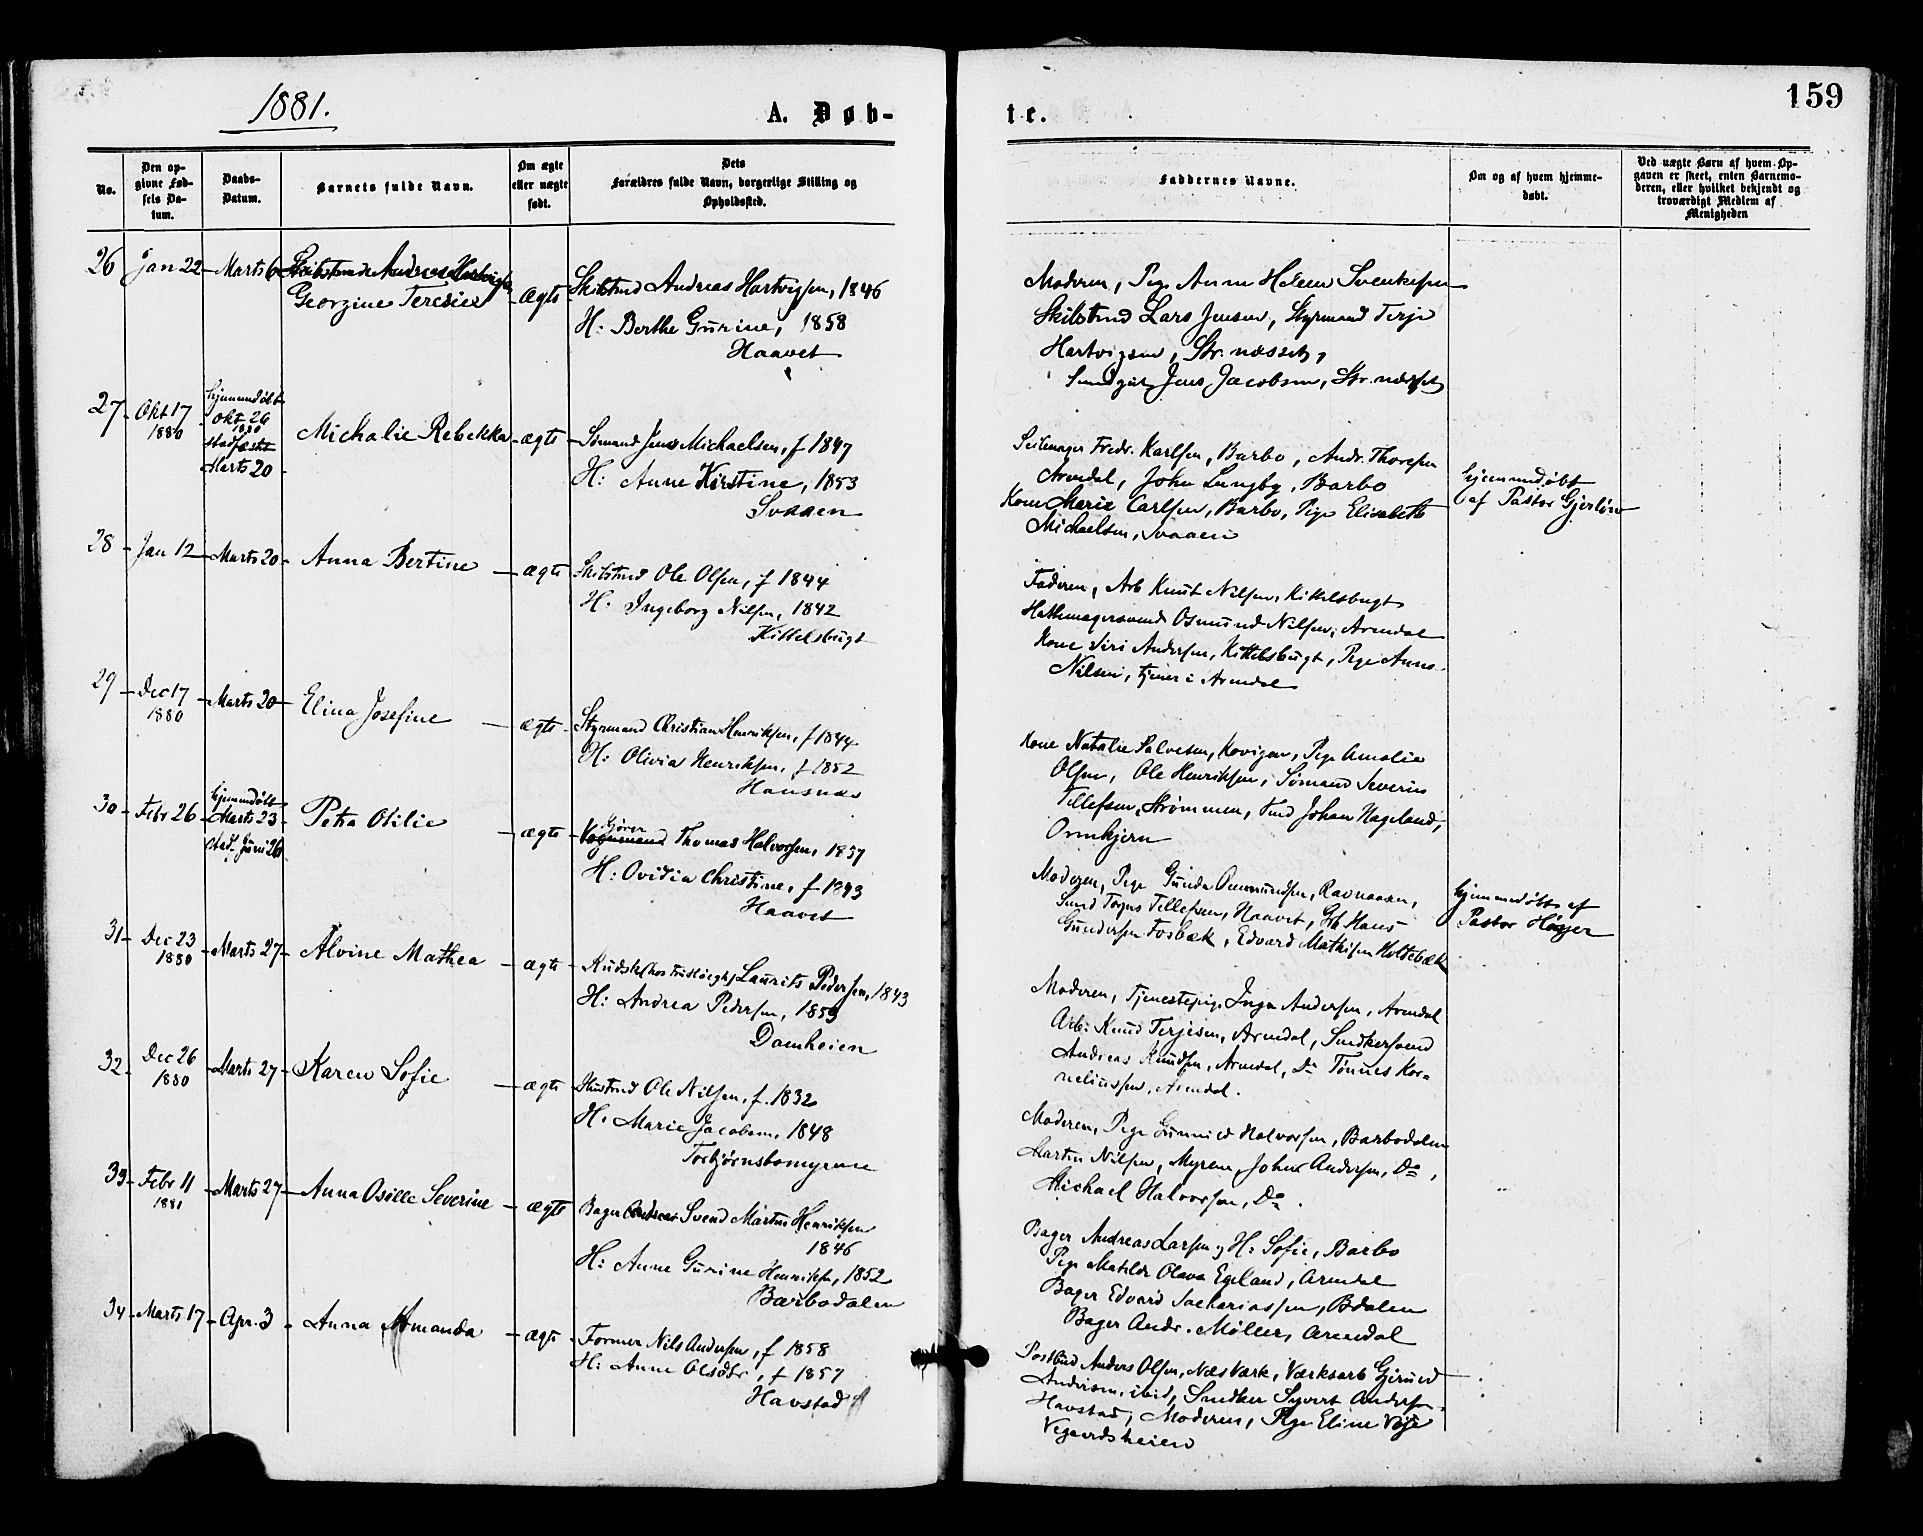 1881.
A. Døb-
te.
159
No.
Den op-
givne Fød-
sels Da-
tum.
Daabs-
Datum.
Barnets fulde Navn.
Om ægte
eller uægte
født.
Dets
Forældres fulde Navn, borgerlige Stilling og
Opholdssted.
Faddernes Navne.
Om og af hvem hjemme-
døbt.
Ved uægte Børn af hvem Op-
gaven er skeet, enten Barnemo-
deren, eller hvilket bekjendt og
troværdigt Medlem af
Menigheden
26 Jan 22 Marts 6 Skibstmd Andreas Hartvigsen
Georgine Teresie ægte Skibstmd Andreas Hartvigsen, 1846
H: Berthe Gurine, 1858
Haavet
Moderen, Pige Anne Helene Svenkesen
Skibstmd Lars Jensen, Styrmand Terje
Hartvigsen, Str. næsset,
Jens Jacobsen, Str. næsset
27 Okt 17
1880
hjemmedøbt
Okt 26
1880
stadfæstet
Marts 20
Michalie Rebekka ægte Sømand Jens Michaelsen, f 1847
H: Anne Kirstine, 1853
Svaaen
Seilmager Fredr. Karlsen, Barbo, Andr. Thorsen
Arendal, John Lungby, Barbo
Kone Marie Carlsen, Barbo, Pige Elisabeth
Michaelsen, Svaaen
hjemmedøbt
af Pastor Gjerløw
28 Jan 12 Marts 20 Anna Bertine ægte Skibstmd Ole Olsen, f 1844
H: Ingeborg Nilsen, 1842
Kittelsbugt
Faderen, Arb Knut Nilsen, Kittelsbugt
Hattemagersvend Osmund Nilsen, Arendal
Kone Siri Andersen, Kittelsbugt, Pige Anne
Nilsen, tjener i Arendal
29 Dec 17
1880
Marts 20 Elina Josefine ægte Styrmand Christian Henriksen, f 1844
H: Olivia Henriksen, f 1852
Hausnæs
Kone Natalie Salvesen, Kovigen, Pige Amalie
Olsen, Ole Henriksen, Sømand Severin
Tellefsen, Strømmen, Tmd Johan Hageland,
Ormkjern
30 Febr 26 hjemmedøbt
Marts 23
stad. Juni 26
Petra Otilie ægte Vognmand Thomas Halvorsen, 1857
H: Ovidia Christine, f 1843
Haavet
Moderen, Pige Gunda Aanundsen, Ravnaasen,
Tmd Torjus Tellefsen, Haavet, Gb Hans
Gundersen Fosbæk, Edvard Mathisen Holtebæk
hjemmedøbt af
Pastor Høyer
31 Dec 23
1880
Marts 27 Alvine Mathea ægte Kudsk Laurits Pedersen, 1843
H: Andrea Pedersen, 1853
Damheien
Moderen, Tjenestepige Inga Andersen, Arendal
Arb: Knud Terjesen, Arendal, Snedkersvend
Andreas Knudsen, Arendal, Do Tønnes Kor=
neliussen, Arendal.
32 Dec 26
1880
Marts 27 Karen Sofie ægte Hustmd Ole Nilsen, f. 1832
H. Marie Jacobsen, 1848
Torbjørnsbomyrene
Moderen, Pige Gunnild Halvorsen, Barbodalen
Martin Nilsen, Myrene, Johan Andersen, Do,
Michael Halvorsen, Do.
33 Febr 11
1881
Marts 27 Anna Osille Severine ægte Bager Andreas Svend Martin Henriksen
1846
H: Anne Gurine Henriksen, 1852
Barbodalen
Bager Andreas Larsen, H: Sofie, Barbo
Pige Matilde Olava Egeland, Arendal
Bager Edvard Sachariassen, Bdalen
Bager Andr. Møller, Arendal
34 Marts 17 Apr. 3 Anna Amanda ægte Former Nils Andersen, f 1858
H: Anne Olsdtr, f 1857
Havstad
Postbud Anders Olsen, Næs Værk, Værksarb Gjeruld
Andersen, ibid, Snedker Syvert Andersen
Havstad, Moderen, Pige Eline Voje
Vegaardsheien